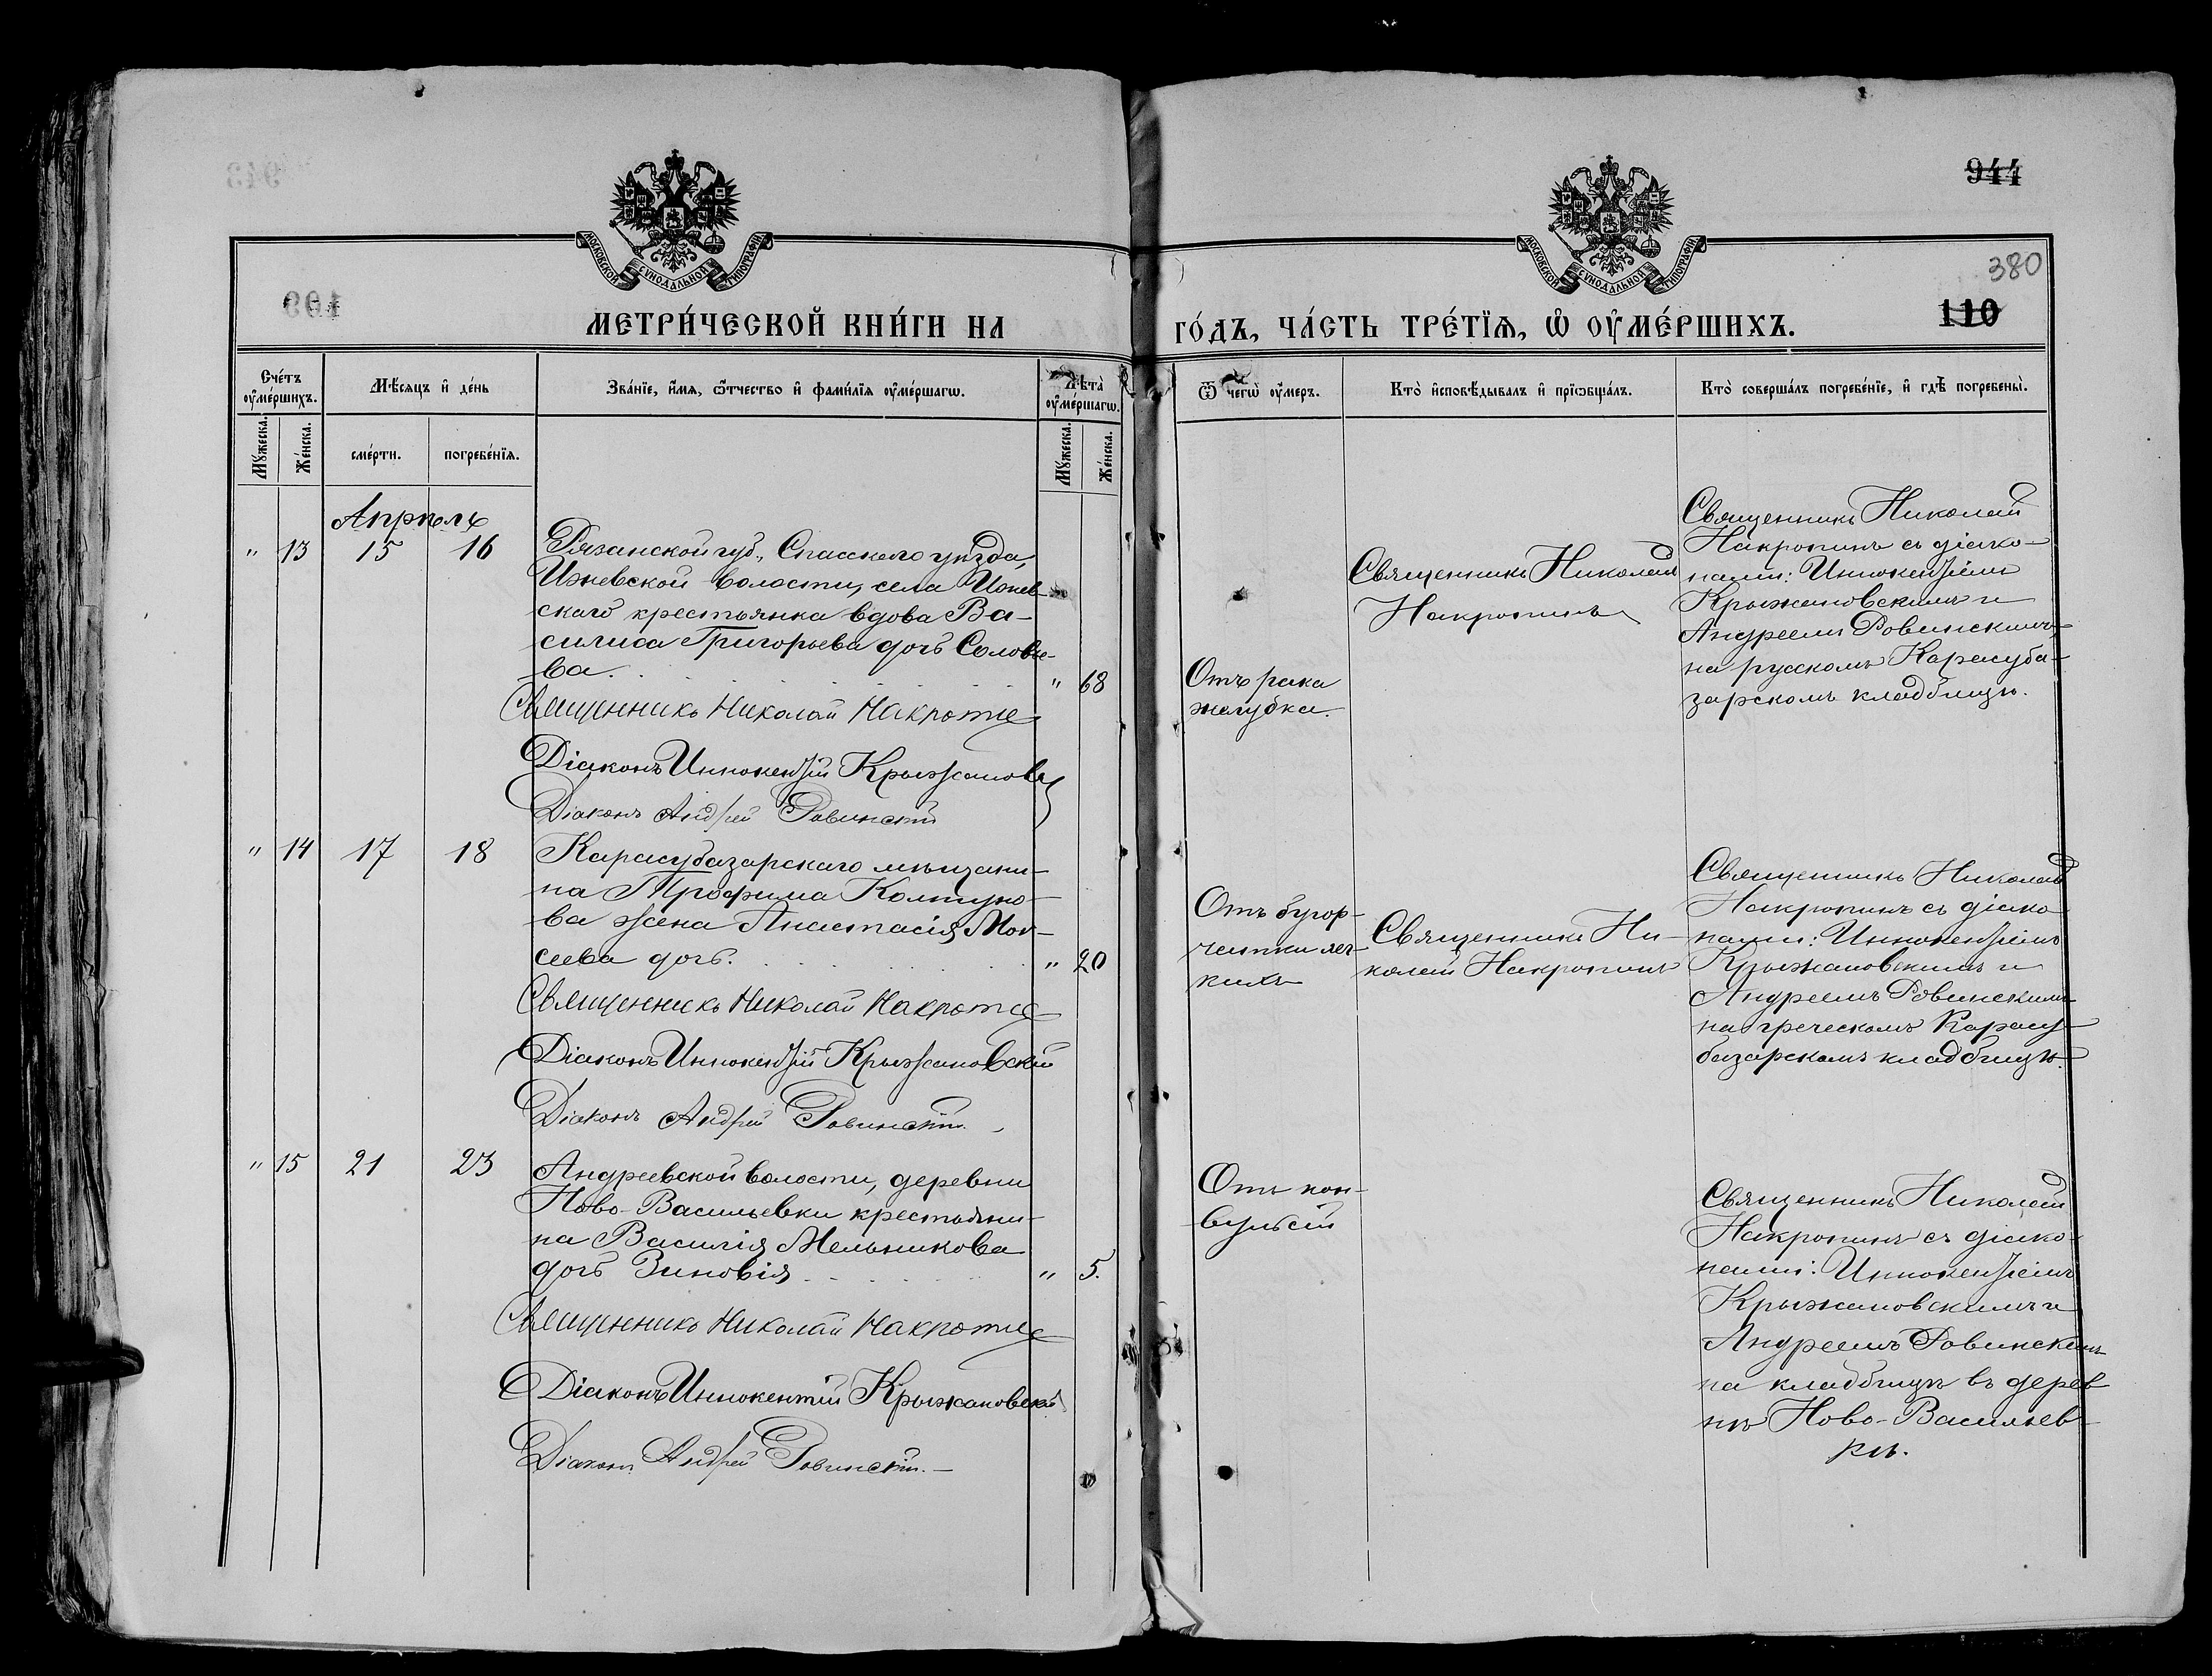 944
380
110
МОСКОВСКОЙ СѴНОДАЛЬНОЙ ТИПОГРАФІИ
МОСКОВСКОЙ СѴНОДАЛЬНОЙ ТИПОГРАФІИ
МЕТРИ́ЧЕСКОЙ КНИ́ГИ НА
ГО́ДЪ, ЧА́СТЬ ТРЕ́ТЇѦ, Ѡ҆ ОУ҆МЕ́РШИХЪ.
Сче́тъ оу҆ме́ршихъ.
Мѣ́сяцъ и҆ де́нь
Зва́нїе, и҆́мѧ, ѻ҆́тчество и҆ фами́лїѧ оу҆ме́ршагѡ.
Лѣ́та оу҆ме́ршагѡ.
Ѿ чегѡ̀ оу҆́меръ.
Кто̀ и҆сповѣ́дывалъ и҆ прїѡбща́лъ.
Кто̀ соверша́лъ погребе́нїе, и҆ гдѣ̀ погребены̀.
Мꙋ́жеска.
Же́нска.
сме́рти.
погребе́нїѧ.
Мꙋ́жеска.
Же́нска.
Апрѣль
" 13 15 16
Рязанской губ., Спасскаго уѣзда,
Ижевской волости, села Ижев-
скаго крестьянка вдова Ва-
силиса Григорьева дочь Соловье-
ва. " 68
Священникъ Николай Накропин
Діаконъ Иннокентій Крыжановс
Діаконъ Андрей Ровинскій
Отъ рака
желудка.
Священникъ Николай
Накропинъ
Священникъ Николай
Накропинъ съ діако-
нами: Иннокентіемъ
Крыжановскимъ и
Андреемъ Ровинскимъ,
на русскомъ Карасуба-
зарскомъ кладбищѣ.
" 14 17 18
Карасубазарскаго мѣщани-
на Трофима Колтуно-
ва жена Анастасія Мои-
сеева дочь. " 20
Священникъ Николай Накропин
Діаконъ Иннокентій Крыжановскій
Діаконъ Андрей Ровинскій
Отъ бугор-
чатки лег-
кихъ
Священникъ Ни-
колай Накропинъ
Священникъ Николай
Накропинъ съ діако-
нами: Иннокентіемъ
Крыжановскимъ и
Андреемъ Ровинскимъ
на греческомъ Карасу-
базарскомъ кладбищѣ.
" 15 21 23
Андреевской волости, деревни
Ново-Васильевки крестьяни-
на Василія Мельникова
дочь Зиновія " 5.
Священникъ Николай Накропин
Діаконъ Иннокентій Крыжановскій
Діаконъ Андрей Ровинскій
Отъ кон-
вульсій
Священникъ Николай
Накропинъ съ діако-
нами: Иннокентіемъ
Крыжановскимъ и
Андреемъ Ровинскимъ
на кладбищѣ въ дерев-
нѣ Ново-Васильев-
кѣ.